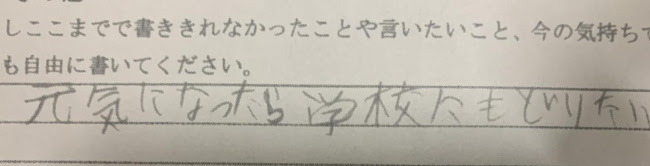 しここまでで書ききれなかったことや言いたいこと、今の気持ちで
も自由に書いてください。
元気になったら学校にもどりたい